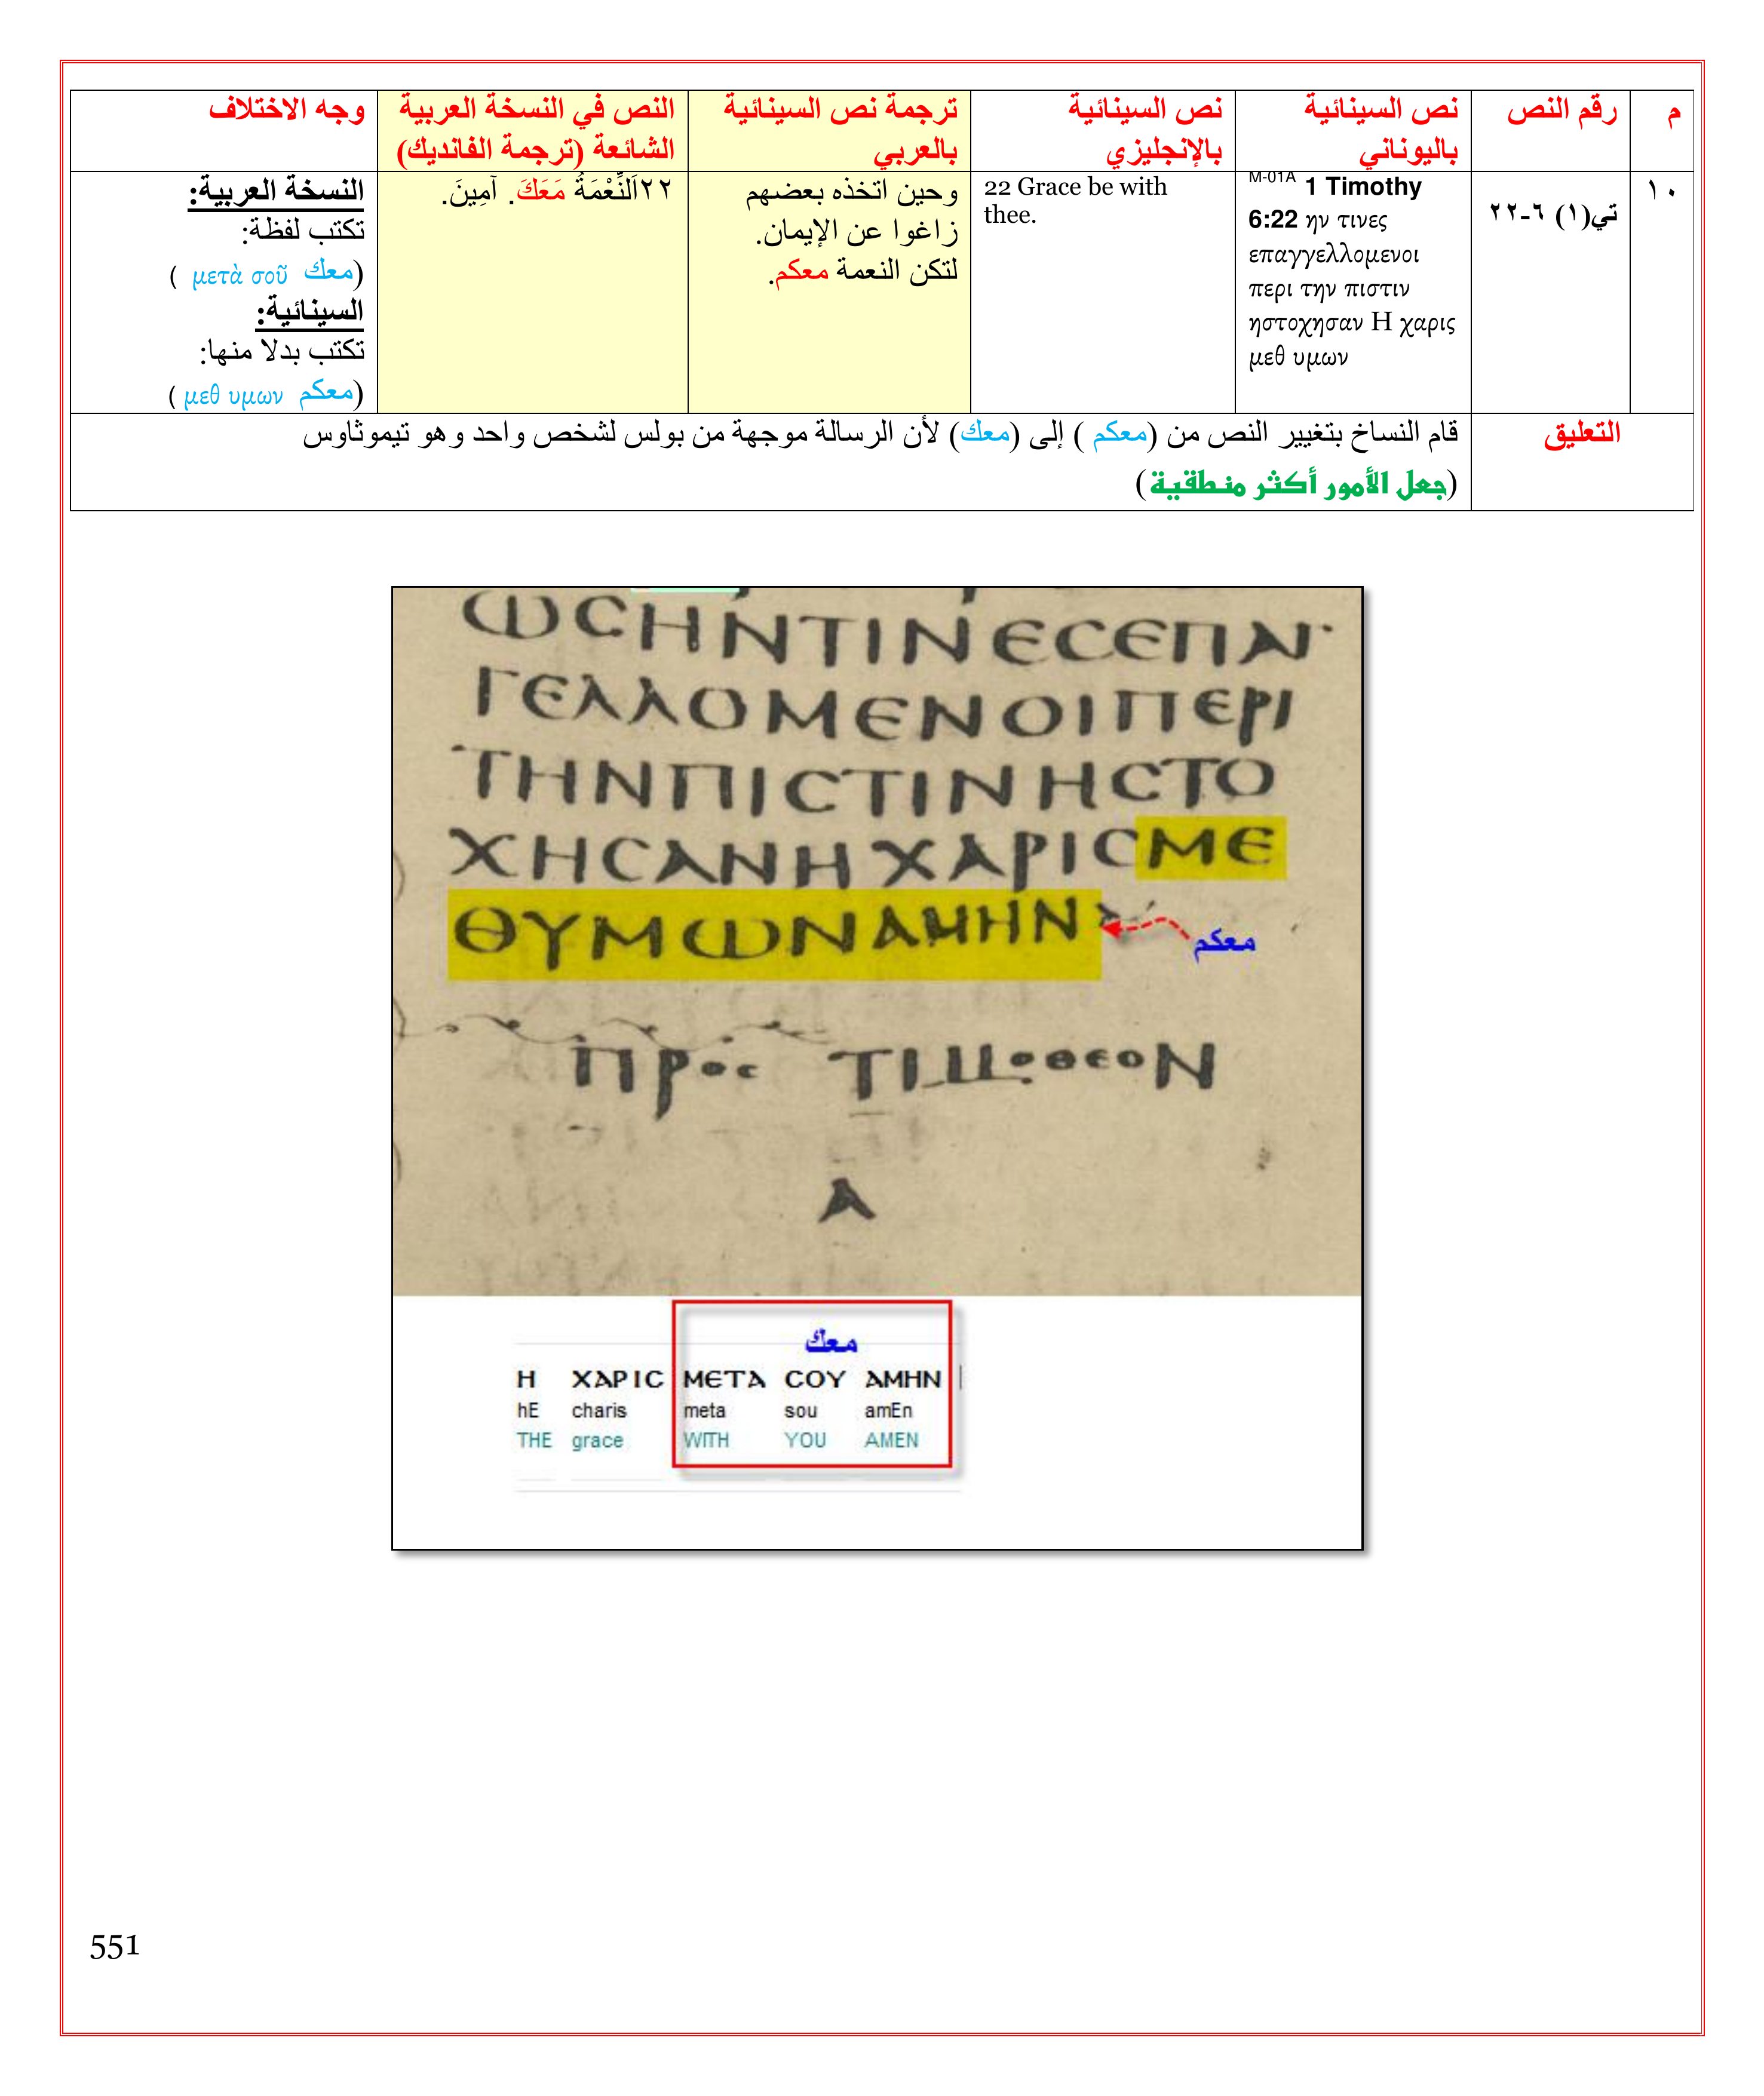 م
رقم النص
نص السينائية
باليوناني
نص السينائية
بالإنجليزي
ترجمة نص السينائية
بالعربي
النص في النسخة العربية
الشائعة (ترجمة الفانديك)
وجه الاختلاف
١٠
تي(١) ٦-٢٢
M-01A 1 Timothy
6:22 ην τινες
επαγγελλομενοι
περι την πιστιν
ηστοχησαν Η χαρις
μεθ υμων
22 Grace be with
thee.
وحين اتخذه بعضهم
زاغوا عن الإيمان.
لتكن النعمة معكم.
٢٢اَلنِّعْمَةُ مَعَكَ. آمِينَ.
النسخة العربية:
تكتب لفظة:
(معك μετὰ σοῦ )
السينائية:
تكتب بدلا منها:
(معكم μεθ υμων )
التعليق
قام النساخ بتغيير النص من (معكم ) إلى (معك) لأن الرسالة موجهة من بولس لشخص واحد وهو تيموثاوس
(جعل الأمور أكثر منطقية )
ⲰⲤⲎⲚⲦⲒⲚⲈⲤⲈⲠⲀⲄ
ⲄⲈⲖⲖⲞⲘⲈⲚⲞⲒⲠⲈⲢⲒ
ⲦⲎⲚⲠⲒⲤⲦⲒⲚⲎⲤⲦⲞ
ⲬⲎⲤⲀⲚⲎⲬⲀⲢⲒⲤⲘⲈ
ⲐⲨⲘⲰⲚⲀⲘⲎⲚ
معكم
ⲠⲢⲞⲤ ⲦⲒⲘⲞⲐⲈⲞⲚ
Ⲁ
معك
Η ΧΑΡΙC ΜЄΤΑ CΟΥ ΑΜΗΝ
hE charis meta sou amEn
THE grace WITH YOU AMEN
551